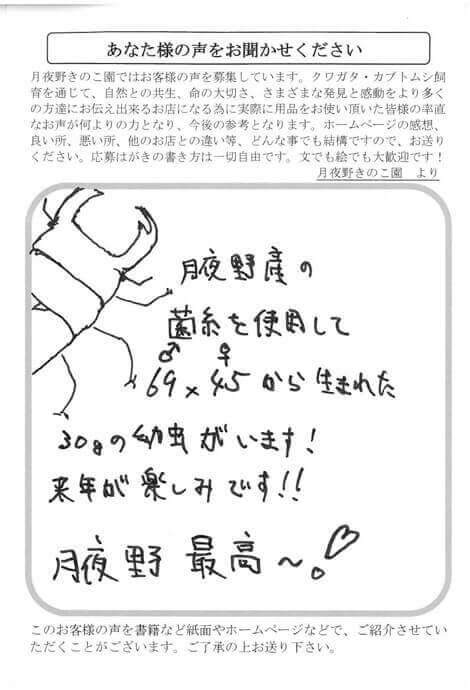 あなた様の声をお聞かせください
月夜野きのこ園ではお客様の声を募集しています。クワガタ・カブトムシ飼
育を通じて、自然との共生、命の大切さ、さまざまな発見と感動をより多く
の方達にお伝え出来るお店になる為に実際に用品をお使い頂いた皆様の率直
なお声が何よりの力となり、今後の参考となります。ホームページの感想、
良い所、悪い所、他のお店との違い等、どんな事でも結構ですので、お送り
ください。応募はがきの書き方は一切自由です。文でも絵でも大歓迎です！
月夜野きのこ園　より
月夜野産の
菌糸を使用して
♂ ♀
69×45から生まれた
30gの幼虫がいます！
来年が楽しみです!!
月夜野 最高〜!♡
このお客様の声を書籍など紙面やホームページなどで、ご紹介させてい
ただくことがございます。ご了承の上お送り下さい。